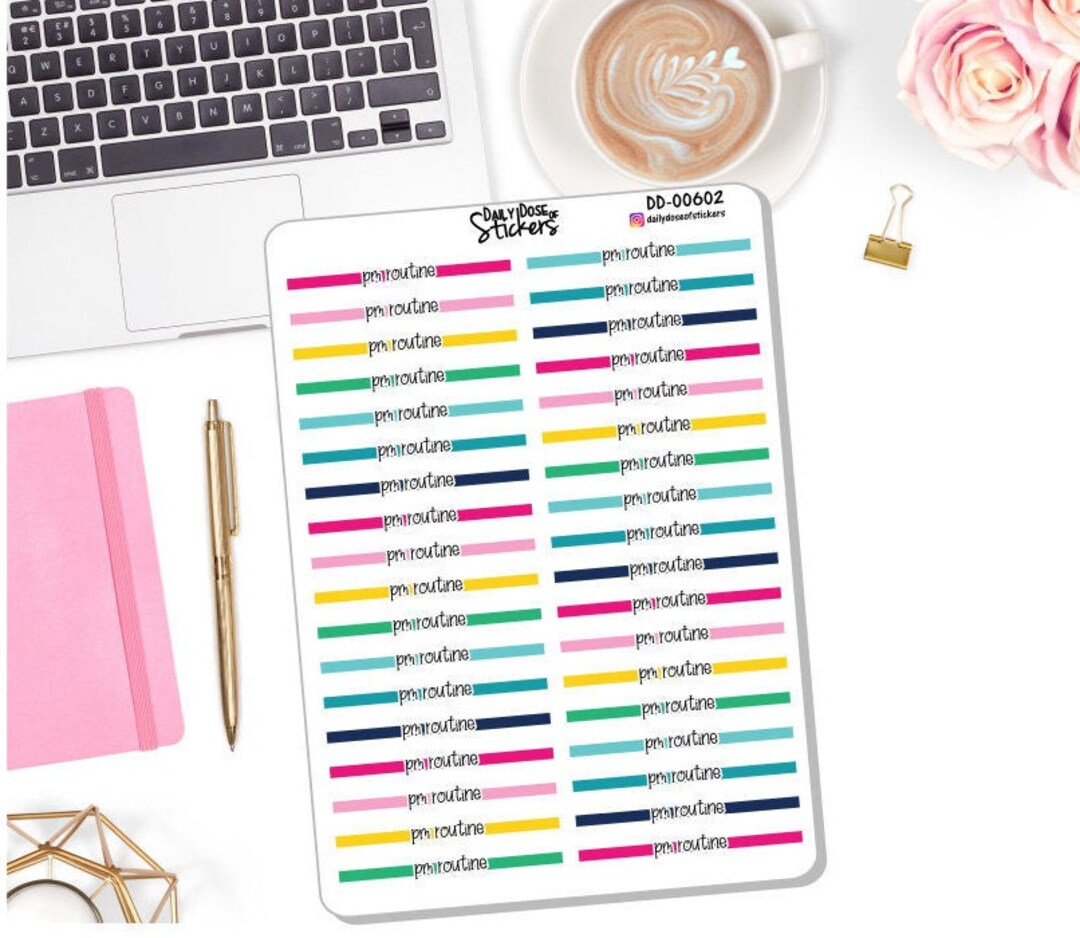 Q W E R T Y U I O P
A S D F G H J K L
Z X C V B N M
cmd cmd
DAILY DOSE OF
Stickers
DD-00602
dailydoseofstickers
pm routine
pm routine
pm routine
pm routine
pm routine
pm routine
pm routine
pm routine
pm routine
pm routine
pm routine
pm routine
pm routine
pm routine
pm routine
pm routine
pm routine
pm routine
pm routine
pm routine
pm routine
pm routine
pm routine
pm routine
pm routine
pm routine
pm routine
pm routine
pm routine
pm routine
pm routine
pm routine
pm routine
pm routine
pm routine
pm routine